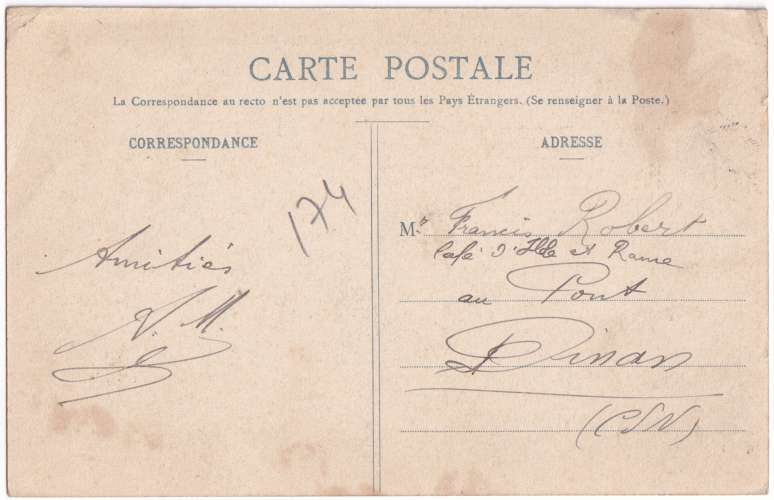 CARTE POSTALE
La Correspondance au recto n'est pas acceptée par tous les Pays Étrangers. (Se renseigner à la Poste.)
CORRESPONDANCE
174
Amitiés
A. M.
ADRESSE
Mr Francis Robert
Café d'Ille et Rance
au Pont
Dinan
(CDN)